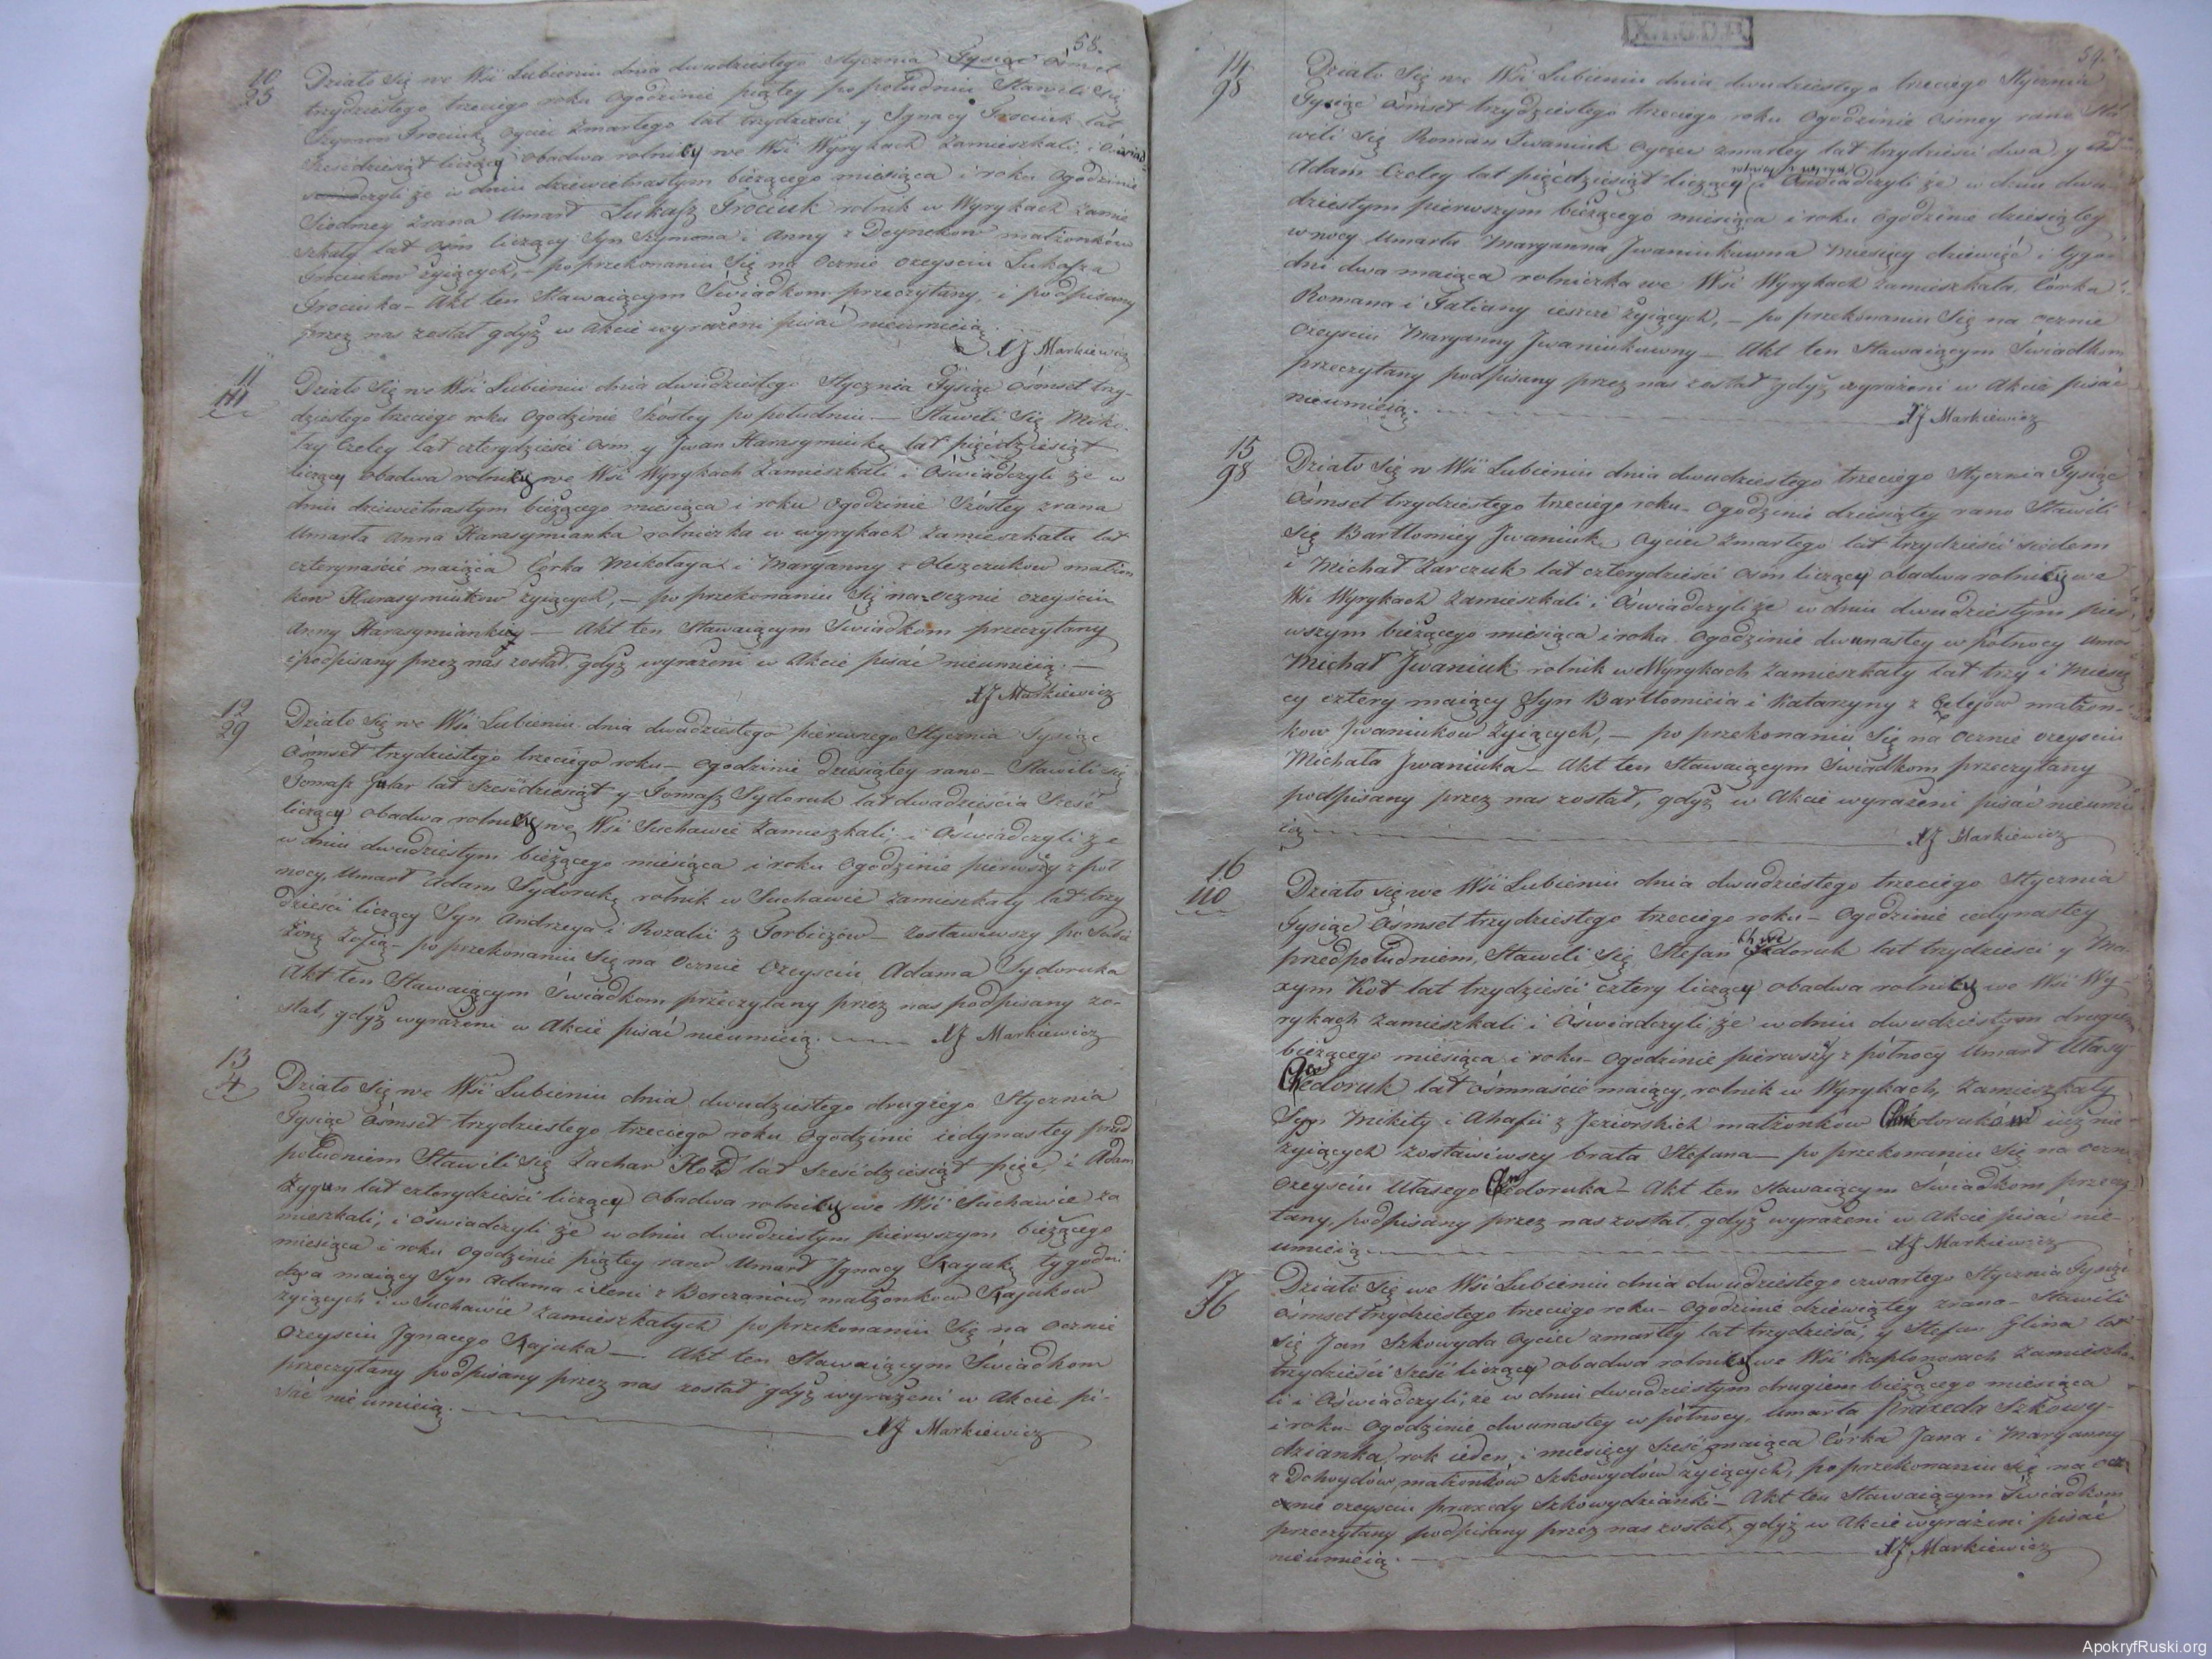 58.
10
23
Działo się we Wsi Lubieniu dnia dwudziestego Stycznia Tysiąc Ośmset
trzydziestego trzeciego roku ogodzinie piątey popołudniu Stawili się
Szymon Trociuk Oyciec Zmarłego lat trzydzieści y Ignacy Trociuk lat
sześćdziesiąt liczący obadwa rolnicy we Wsi Wyrykach Zamieszkali, i Oświad-
czyli że w dniu dziewietnastym bieżącego miesiąca i roku Ogodzinie
Siodmey zrana Umarł Łukasz Trociuk rolnik w Wyrykach zamie
szkały lat ośm liczący Syn Szymona i Anny z Deynekow małżonków
Trociukow żyiących, — po przekonaniu Się na Ocznie ozeyściu Łukasza
Trociuka — Akt ten Stawaiącym Świadkom przeczytany, i podpisany
przez nas został gdyż w Akcie wyrażeni pisać nieumieią.
XJ Markiewicz
11
111
Działo Się we Wsi Lubieniu dnia dwudziestego Stycznia Tysiąc Ośmset trzy-
dziestego trzeciego roku Ogodzinie Szóstey popołudniu — Stawili Się Miko-
łay Czeley lat czterydzieści ośm y Jwan Harasymiuk lat pięćdziesiąt
liczący obadwa rolnicy we Wsi Wyrykach Zamieszkali i Oświadczyli że w
dniu dziewietnastym bieżącego miesiąca i roku Ogodzinie Szóstey zrana
Umarła Anna Harasymianka rolniczka w wyrykach Zamieszkała lat
czternaście maiąca Córka Mikołaya i Maryanny z Oleszczuków małżon
kow Harasymiuków żyiących, — po przekonaniu Się na-ocznie ozeyściu
Anny Harasymianki — Akt ten Stawaiącym Świadkom przeczytany
i podpisany przez nas został, gdyż wyrażeni w Akcie pisać nieumieią. —
XJ Markiewicz
12
29
Działo Się we Wsi Lubieniu dnia dwudziestego pierwszego Stycznia Tysiąc
Ośmset trzydziestego trzeciego roku — ogodzinie Dziesiątey rano — Stawili się
Tomasz Gular lat sześćdziesiąt y Tomasz Sydoruk lat dwadzieścia Sześć
liczący obadwa rolnicy we Wsi Suchawie Zamieszkali i Oświadczyli że
w dniu dwudziestym bieżącego miesiąca i roku Ogodzinie pierwszy z pół
nocy, Umarł Adam Sydoruk rolnik w Suchawie zamieszkały lat trzy
dzieści liczący Syn Andrzeya i Rozalii z Torbiczów — Zostawiwszy po Sobie
Żonę Zofią — po przekonaniu Się na Ocznie Ozeyściu Adama Sydoruka
Akt ten Stawaiącym Świadkom przeczytany przez nas podpisany zo-
stał, gdyż wyrażeni w Akcie pisać nieumieią. — XJ Markiewicz
13
4
Działo Się we Wsi Lubieniu dnia dwudziestego drugiego Stycznia
Tysiąc Ośmset trzydziestego trzeciego roku Ogodzinie iedynastey przed
południem Stawili Się Zachar Hołd lat Sześćdziesiąt pięć, i Adam
Zygun lat czterydzieści liczący Obadwa rolnicy we Wsi Suchawie za
mieszkali, i oświadczyli że w dniu dwudziestym pierwszym bieżącego
miesiąca i roku Ogodzinie piątey rano Umarł Jgnacy Kayuk tygodni
dwa maiący Syn Adama i Xeni z Borczanów, małżonkow Kajukow
żyiących i w Suchawie Zamieszkałych po przekonaniu Się na Ocznie
Ozeyściu Jgnacego Kajuka — Akt ten Stawaiącym Świadkom
przeczytany podpisany przez nas został gdyż wyrażeni w Akcie pi-
sać nie umieią. —
XJ Markiewicz
59.
14
98
Działo Się we Wsi Lubieniu dnia dwudziestego trzeciego Stycznia
Tysiąc Ośmset trzydziestego trzeciego roku Ogodzinie Osmey rano Sta-
wili Się Roman Jwaniuk Oyciec zmarłey lat trzydzieści dwa, y
Adam Czeley lat pięćdziesiąt liczący i Oświadczyli że w dniu dwu-
dziestym pierwszym bieżącego miesiąca i roku ogodzinie dziesiątey
w nocy Umarła Maryanna Jwaniukuwna Miesięcy dziewięć i tygo-
dni dwa maiąca rolniczka we Wsi Wyrykach zamieszkała, Córka
Romana i Tatiany ieszcze żyiących, — po przekonaniu Się na ocznie
Ozeyściu Maryanny Jwaniukuwny — Akt ten Stawaiącym Świadkom
przeczytany podpisany przez nas został gdyż wyrażeni w Akcie pisać
nieumieią.
XJ Markiewicz
15
98
Działo Się w Wsi Lubieniu dnia dwudziestego trzeciego Stycznia Tysiąc
Ośmset trzydziestego trzeciego roku — Ogodzinie dziesiątey rano Stawili
się Bartłomiey Jwaniuk Oyciec Zmarłego lat trzydzieści siedem
i Michał Zarczuk lat czterydzieści ośm liczący obadwa rolnicy we
Wsi Wyrykach Zamieszkali i Oświadczyli że w dniu dwudziestym pier-
wszym bieżącego miesiąca i roku Ogodzinie dwunastey w północy Umar
Michał Jwaniuk rolnik w Wyrykach Zamieszkały lat trzy i Miesię
cy cztery maiący Syn Bartłomieia i Katarzyny z Czeleyów małżon-
ków Jwaniuków Żyiących, — po przekonaniu Się na Ocznie ozeyściu
Michała Jwaniuka — Akt ten Stawaiącym Świadkom przeczytany
podpisany przez nas został, gdyż w Akcie wyrażeni pisać nieumie
ią
XJ Markiewicz
16
110
Działo się we Wsi Lubieniu dnia dwudziestego trzeciego Stycznia
Tysiąc Ośmset trzydziestego trzeciego roku — Ogodzinie iedynastey
przed południem, Stawili Się Stefan Chwedoruk lat trzydzieści y Ma-
xym Kot lat trzydzieści cztery liczący obadwa rolnicy we Wsi Wy-
rykach zamieszkali i Oświadczyli że w dniu dwudziestym drugim
bieżącego miesiąca i roku — Ogodzinie pierwszy z północy Umarł Ułasy
Chwedoruk lat ośmnaście maiący, rolnik w Wyrykach, Zamieszkały
Syn Mikity i Ahafii z Jeziorskich małżonków Chwedoruków iuż nie
żyiących zostawiwszy brata Stefana — po przekonaniu Się na Oczni
Ozeyściu Ułasego Chwedoruka — Akt ten Stawaiącym Świadkom przeczy-
tany, podpisany przez nas został, gdyż wyrażeni w Akcie pisać nie-
umieią
XJ Markiewicz
17
36
Działo Się we Wsi Lubieniu dnia dwudziestego czwartego Stycznia Tysiąc
Ośmset trzydziestego trzeciego roku — Ogodzinie dziewiątey zrana — Stawili
się Jan Szkowyda Oyciec zmarłey lat trzydzieści, y Stefan Glina lat
trzydzieści sześć liczący obadwa rolnicy we Wsi Kaplonosach Zamieszka
li i Oświadczyli, że w dniu dwudziestym drugiem bieżącego miesiąca
i roku — Ogodzinie dwunastey w północy, Umarła Praxeda Szkowy-
dzianka, rok ieden i miesięcy sześć maiąca Córka Jana i Maryanny
z Dohoydów, małżonków Szkowydów żyiących, po przekonaniu się na ocz
cznie ozeyściu praxedy Szkowydzianki — Akt ten Stawaiącym Świadkom
przeczytany podpisany przez nas został, gdyż w Akcie wyrażeni pisać
nieumieią.
XJ Markiewicz
ApokryfRuski.org